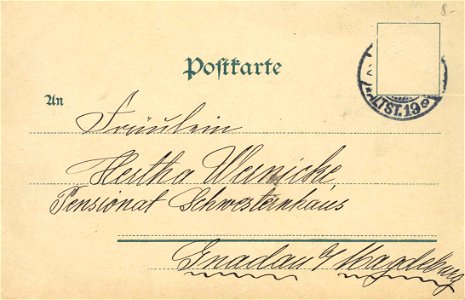 8.-
Postkarte
ALTST. 19
An
Fräulein
Hertha Wernicke,
Pensionat Schwesternhaus
Gnadau b/ Magdeburg